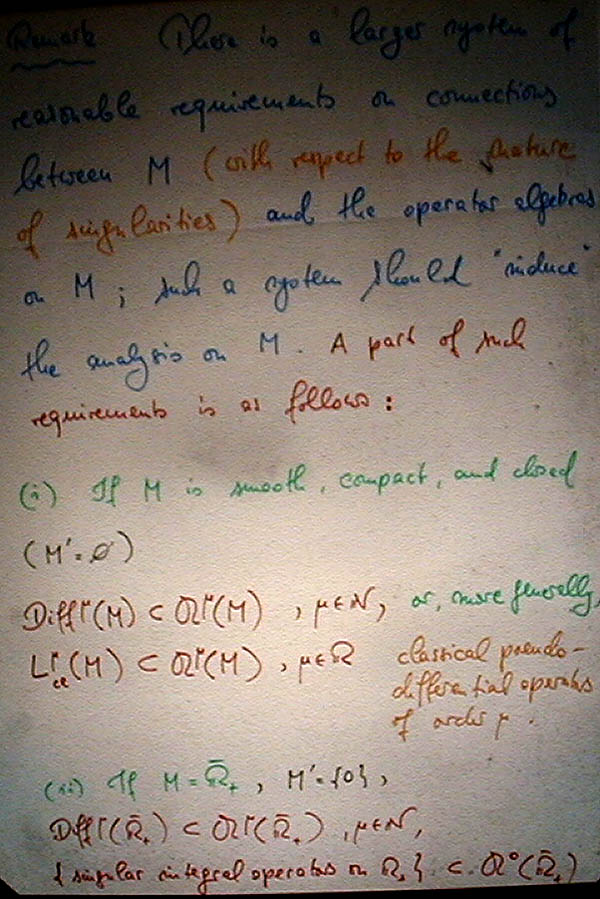 Remark There is a larger system of
reasonable requirements on connections
between M (with respect to the nature
of singularities) and the operator algebras
on M ; such a system should "induce"
the analysis on M. A part of such
requirements is as follows :
(i) If M is smooth, compact, and closed
(M' = ∅)
Diff^μ(M) ⊂ 𝒪^μ(M) , μ∈ℕ, or, more generally,
L^μ_cl(M) ⊂ 𝒪^μ(M) , μ∈ℝ classical pseudo-
differential operators
of order μ .
(ii) If M = ℝ̄₊ , M' = {0} ,
Diff^μ(ℝ̄₊) ⊂ 𝒪^μ(ℝ̄₊) , μ∈ℕ,
{ singular integral operators on ℝ₊ } ⊂ 𝒪⁰(ℝ̄₊)